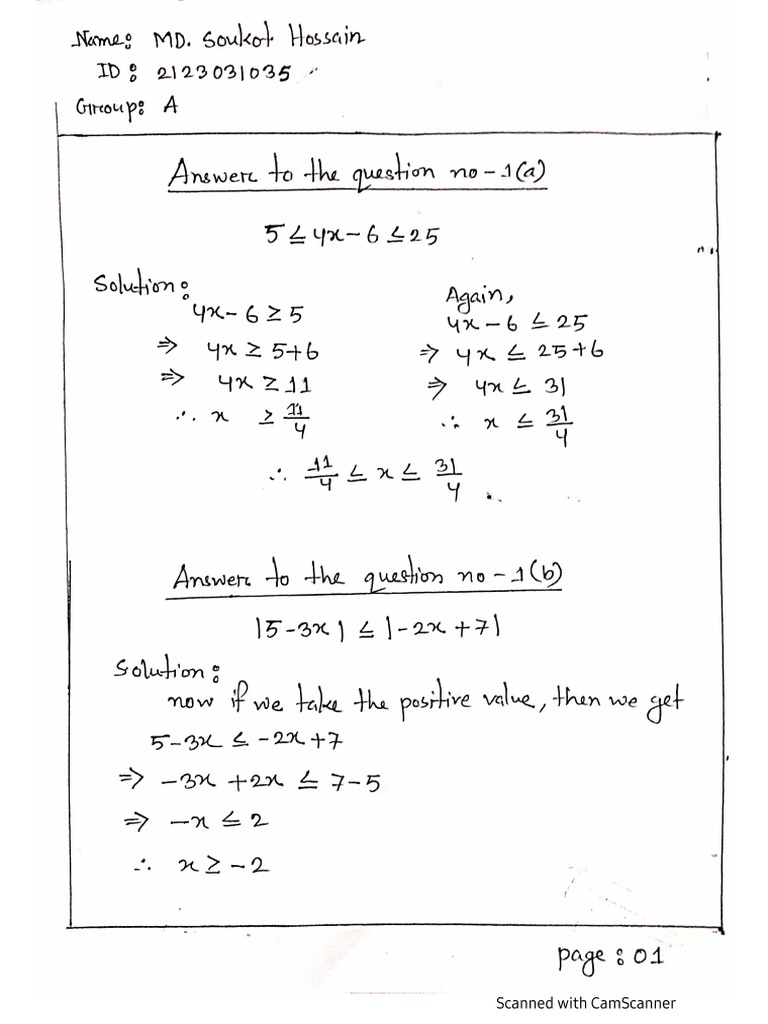 Name: MD. Soukot Hossain
ID: 2123031035
Group: A
Answer to the question no-1(a)
5 ≤ 4x-6 ≤ 25
Solution:
4x-6 ≥ 5
⇒ 4x ≥ 5+6
⇒ 4x ≥ 11
∴ x ≥ 11/4
Again,
4x-6 ≤ 25
⇒ 4x ≤ 25+6
⇒ 4x ≤ 31
∴ x ≤ 31/4
∴ 11/4 ≤ x ≤ 31/4
Answer to the question no-1(b)
|5-3x| ≤ |-2x+7|
Solution:
now if we take the positive value, then we get
5-3x ≤ -2x+7
⇒ -3x+2x ≤ 7-5
⇒ -x ≤ 2
∴ x ≥ -2
page: 01
Scanned with CamScanner